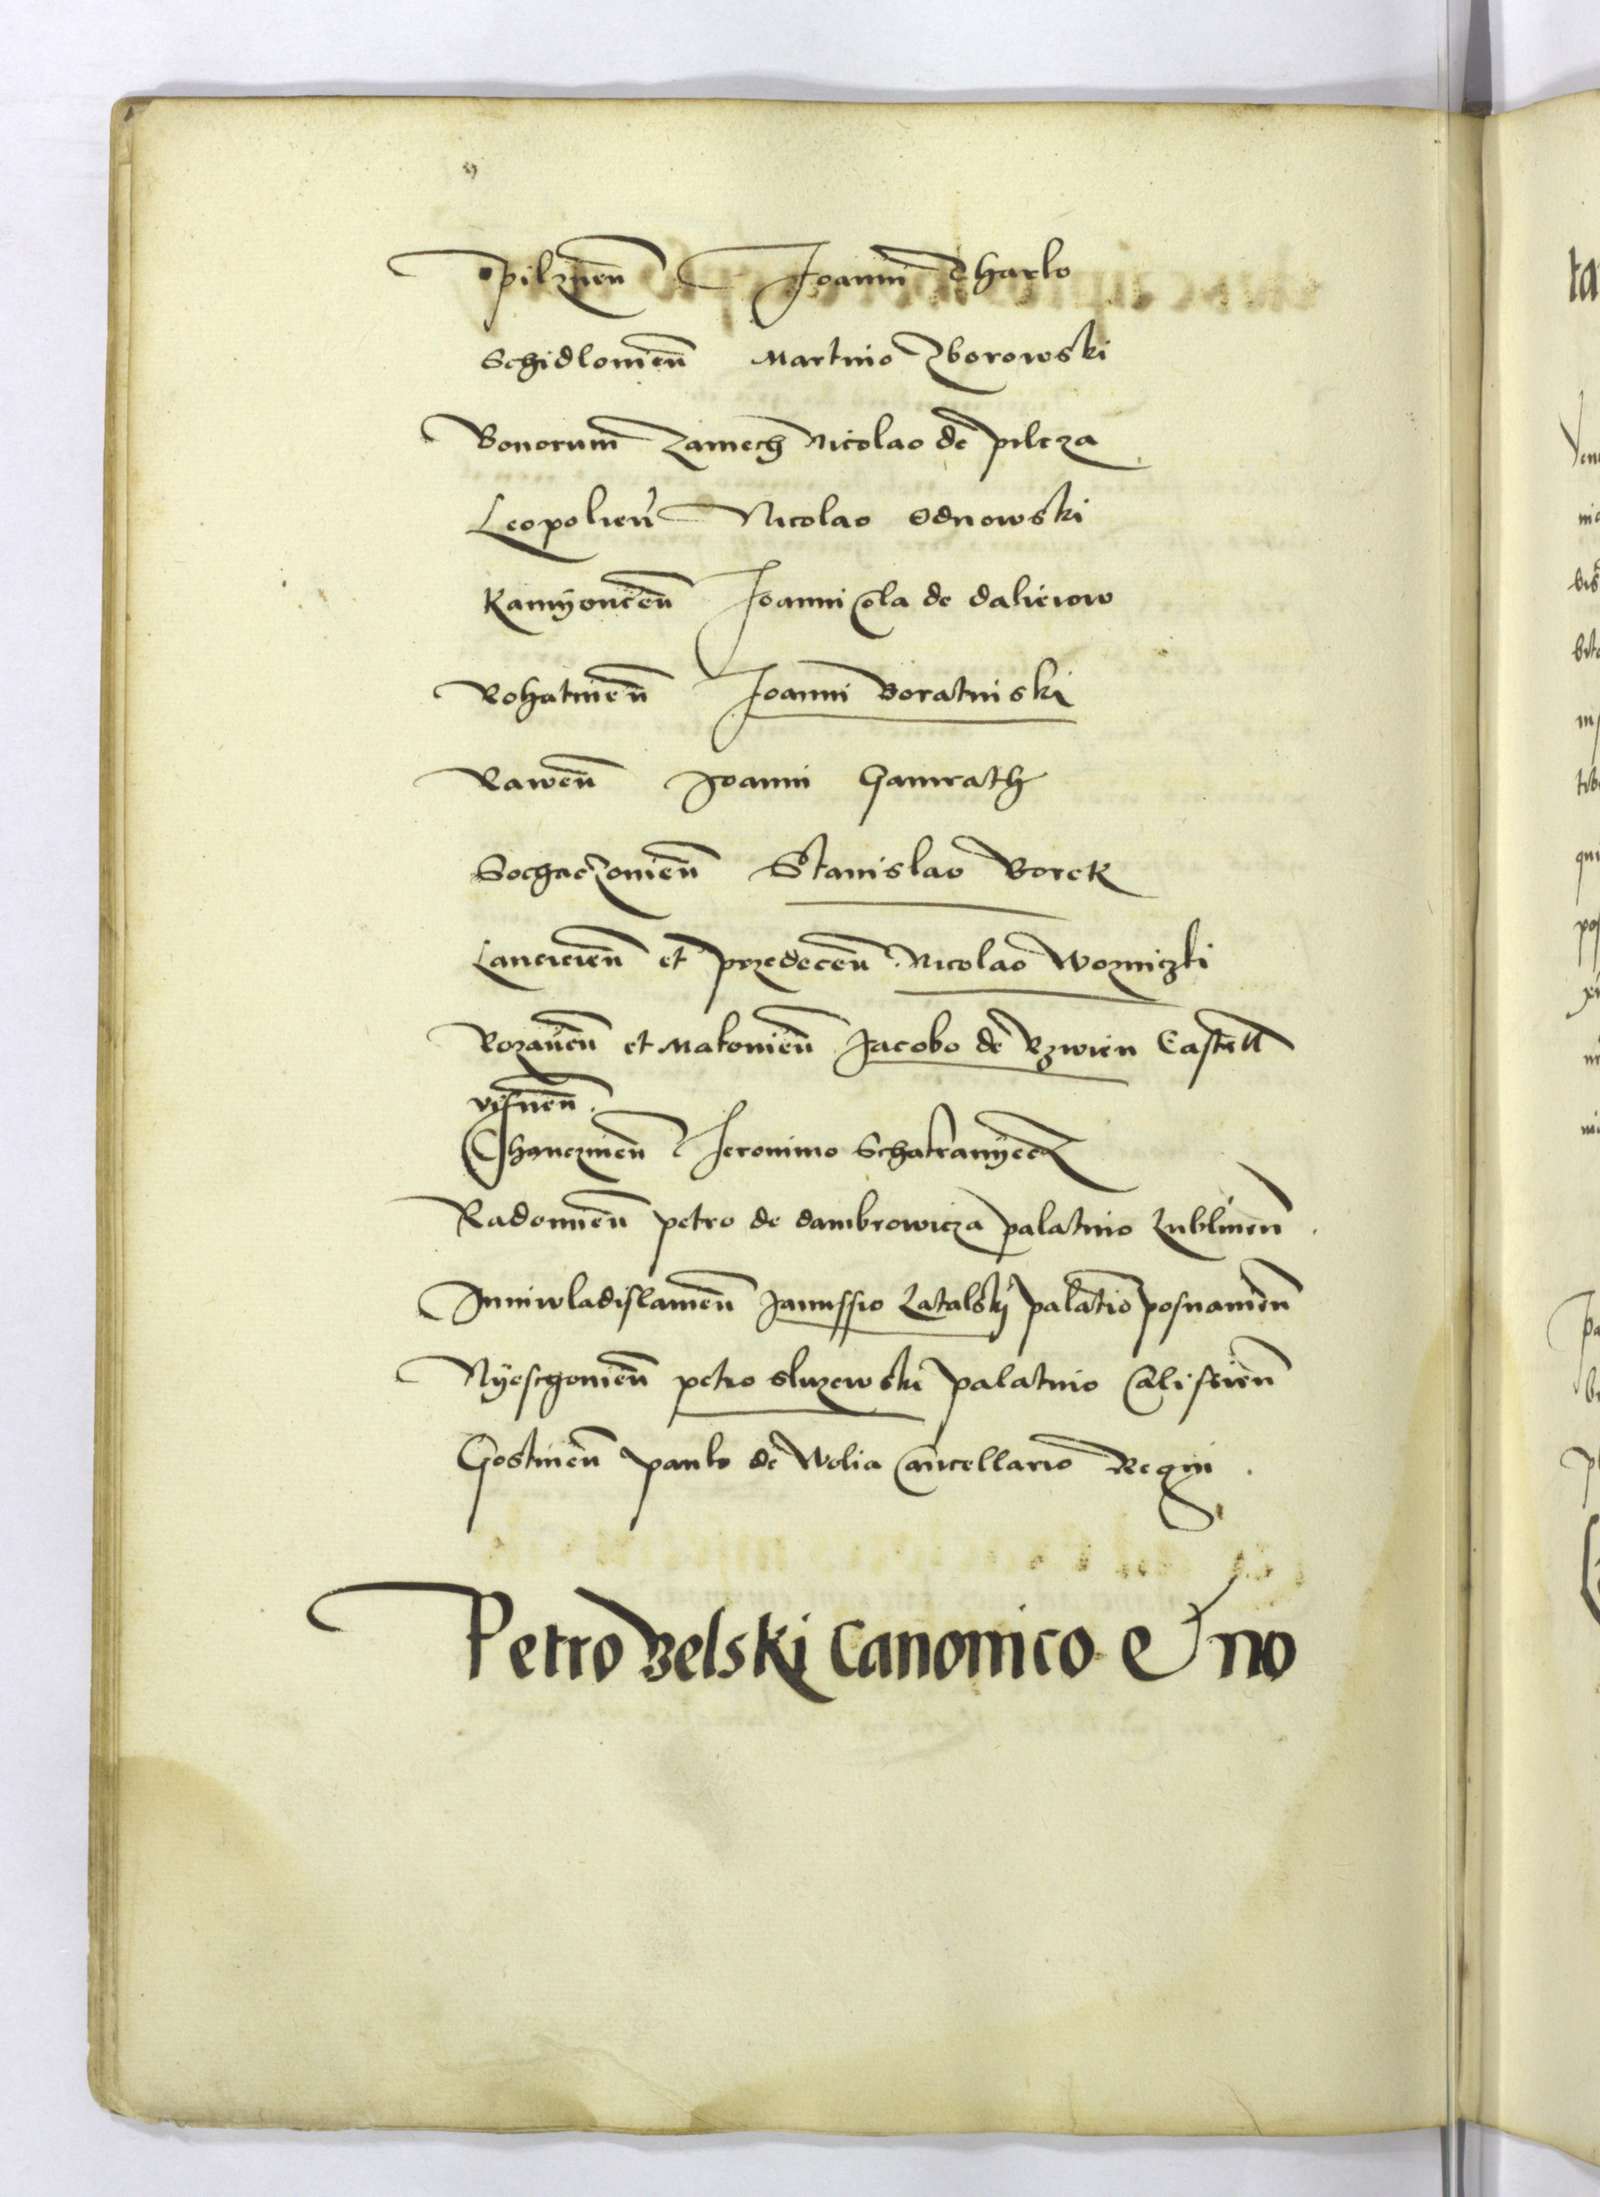 pilznen̄ Joanni Tharlo
Schidlouien̄ Martino Zborowski
Bonorum Zamech Nicolao de pilcza
Leopolien̄ Nicolao Odnowski
Kamÿoncen̄ Joanni Cola de dalieiow
Rohatinen̄ Joanni Boratinski
Rawen̄ Joanni Gamrath
Sochaczouien̄ Stanislao Borek
Lancicien̄ et przedecen̄ Nicolao Wozniczki
Rozanen̄ et Makouien̄ Jacobo de Rzwien Castell
visnen̄.
Chanczinen̄ Jeronimo Schafranÿecz
Radomien̄ petro de dambrowicza palatino Lublinen̄.
Juniwladislauien̄ Janussio Latalskÿ palatio posnanien̄
Nÿeschouien̄ petro sluzewski palatino Calissien̄
Gostinen̄ paulo de Wolia Cancellario Regni.
Petro zelski canonico